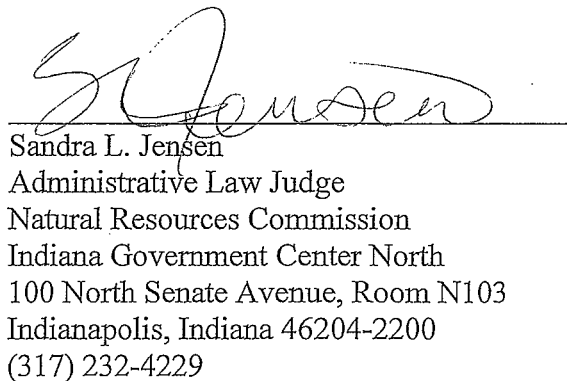 SL Jensen
Sandra L. Jensen
Administrative Law Judge
Natural Resources Commission
Indiana Government Center North
100 North Senate Avenue, Room N103
Indianapolis, Indiana 46204-2200
(317) 232-4229